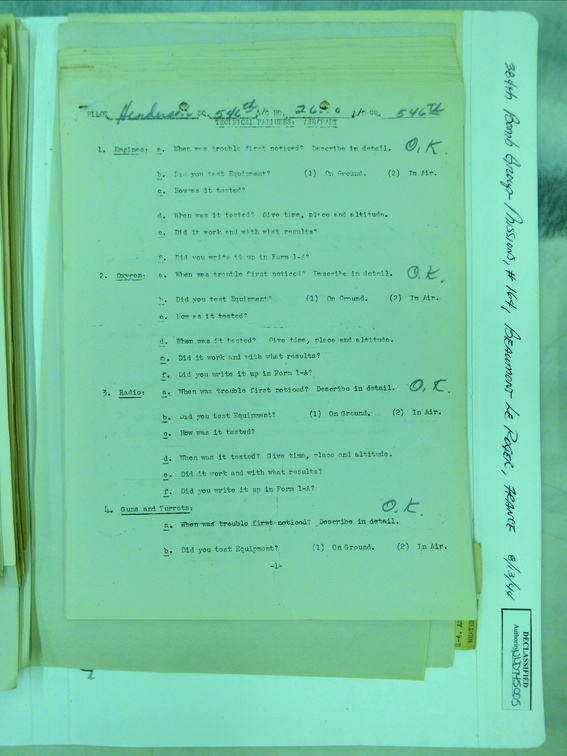 PILOT Henderson SQ. 546th A/C NO. 26 546TH
TECHNICAL FAILURES: AIRCRAFT
1. Engines: a. When was trouble first noticed? Describe in detail. O.K.
b. Did you test Equipment? (1) On Ground. (2) In Air.
c. How was it tested?
d. When was it tested? Give time, place and altitude.
e. Did it work and with what results?
f. Did you write it up in Form 1-A?
2. Oxygen: a. When was trouble first noticed? Describe in detail. O.K.
b. Did you test Equipment? (1) On Ground. (2) In Air.
c. How as it tested?
d. When was it tested? Give time, place and altitude.
e. Did it work and with what results?
f. Did you write it up in Form 1-A?
3. Radio: a. When was trouble first noticed? Describe in detail. O.K.
b. Did you test Equipment? (1) On Ground. (2) In Air.
c. How was it tested?
d. When was it tested? Give time, place and altitude.
e. Did it work and with what results?
f. Did you write it up in Form 1-A?
4. Guns and Turrets: O.K.
a. When was trouble first noticed? Describe in detail.
b. Did you test Equipment? (1) On Ground. (2) In Air.
-1-
384th Bomb Group Missions, #164, BEAUMONT LE ROGER, FRANCE 8/13/44
DECLASSIFIED
Authority NND745005